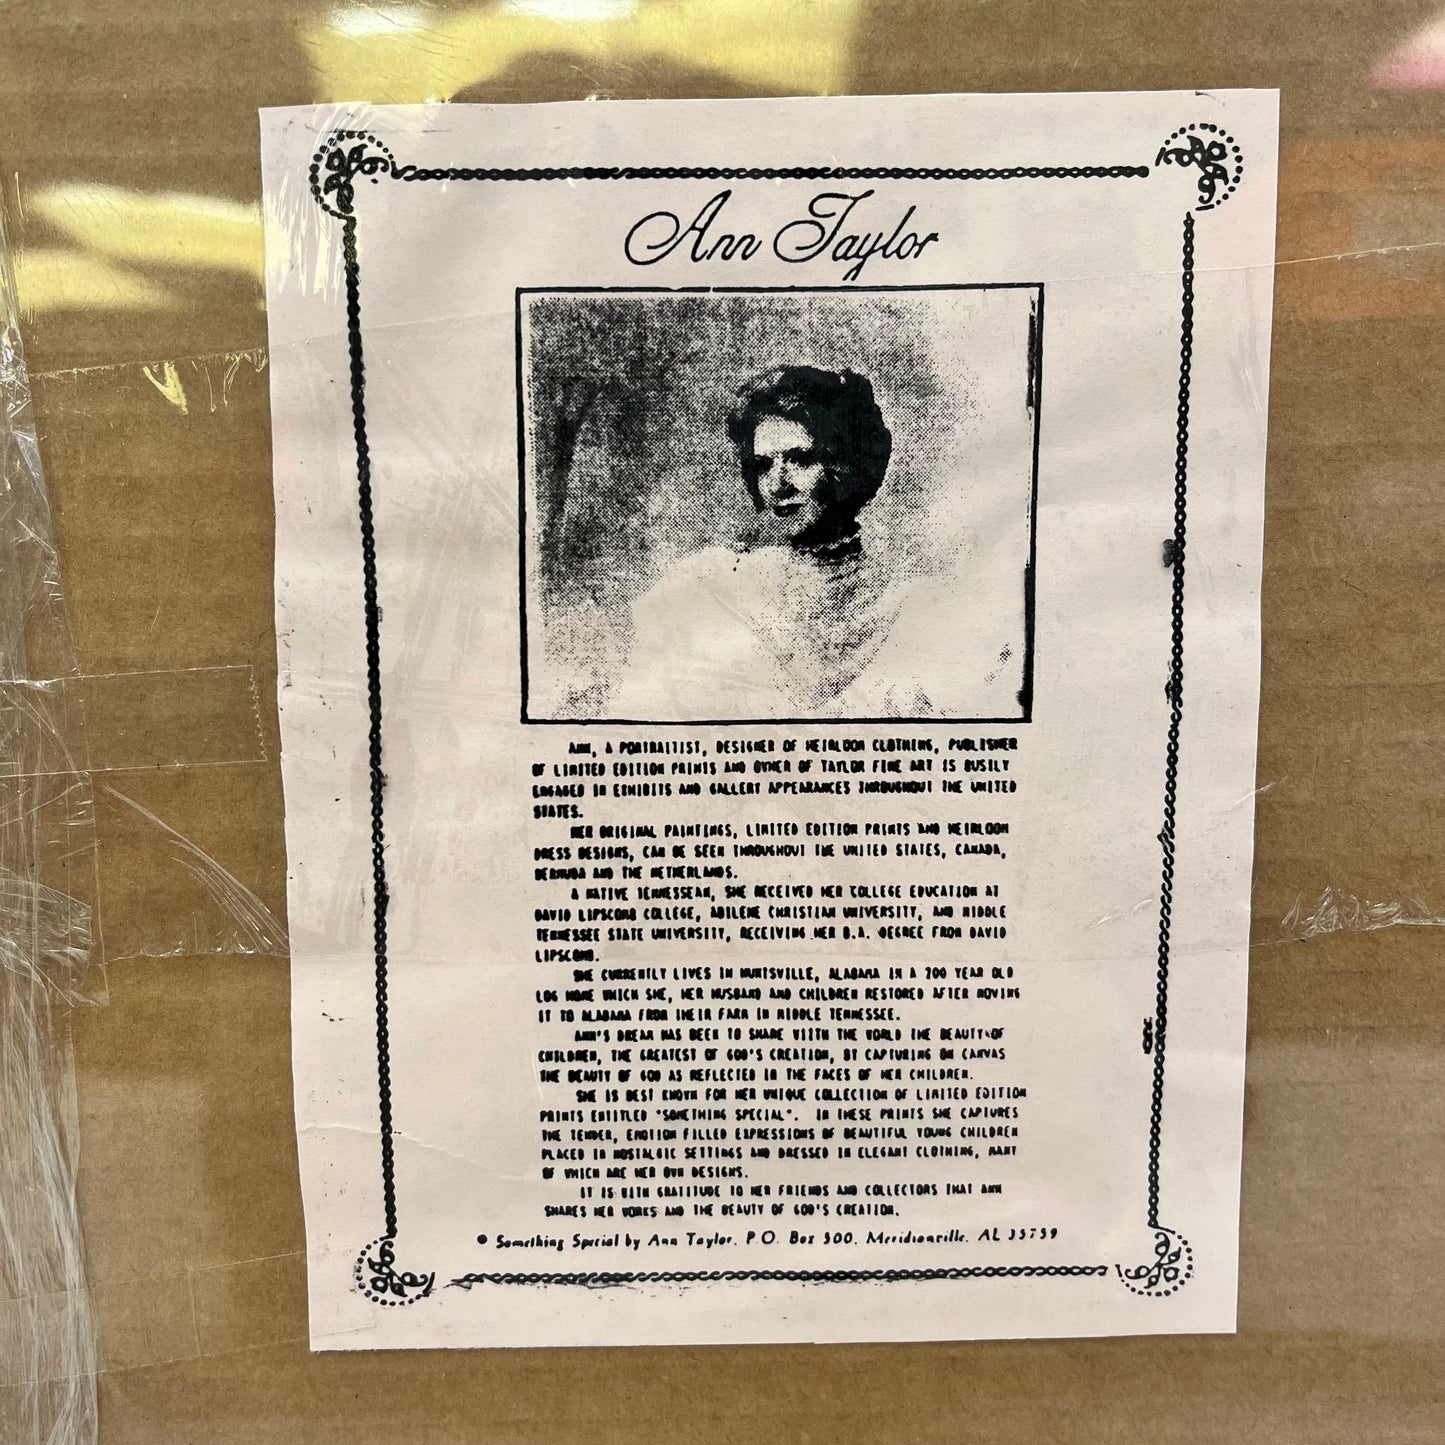 Ann Taylor
ANN, A PORTRAITIST, DESIGNER OF HEIRLOOM CLOTHING, PUBLISHER
OF LIMITED EDITION PRINTS AND OWNER OF TAYLOR FINE ART IS BUSILY
ENGAGED IN EXHIBITS AND GALLERY APPEARANCES THROUGHOUT THE UNITED
STATES.
HER ORIGINAL PAINTINGS, LIMITED EDITION PRINTS AND HEIRLOOM
DRESS DESIGNS, CAN BE SEEN THROUGHOUT THE UNITED STATES, CANADA,
BERMUDA AND THE NETHERLANDS.
A NATIVE TENNESSEAN, SHE RECEIVED HER COLLEGE EDUCATION AT
DAVID LIPSCOMB COLLEGE, ABILENE CHRISTIAN UNIVERSITY, AND MIDDLE
TENNESSEE STATE UNIVERSITY, RECEIVING HER B.A. DEGREE FROM DAVID
LIPSCOMB.
SHE CURRENTLY LIVES IN HUNTSVILLE, ALABAMA IN A 200 YEAR OLD
LOG HOME WHICH SHE, HER HUSBAND AND CHILDREN RESTORED AFTER MOVING
IT TO ALABAMA FROM THEIR FARM IN MIDDLE TENNESSEE.
ANN'S DREAM HAS BEEN TO SHARE WITH THE WORLD THE BEAUTY OF
CHILDREN, THE GREATEST OF GOD'S CREATION, BY CAPTURING ON CANVAS
THE BEAUTY OF GOD AS REFLECTED IN THE FACES OF HER CHILDREN.
SHE IS BEST KNOWN FOR HER UNIQUE COLLECTION OF LIMITED EDITION
PRINTS ENTITLED "SOMETHING SPECIAL". IN THESE PRINTS SHE CAPTURES
THE TENDER, EMOTION FILLED EXPRESSIONS OF BEAUTIFUL YOUNG CHILDREN
PLACED IN NOSTALGIC SETTINGS AND DRESSED IN ELEGANT CLOTHING, MANY
OF WHICH ARE HER OWN DESIGNS.
IT IS WITH GRATITUDE TO HER FRIENDS AND COLLECTORS THAT ANN
SHARES HER WORKS AND THE BEAUTY OF GOD'S CREATION.
© Something Special by Ann Taylor, P.O. Box 300, Meridianville, AL 35759